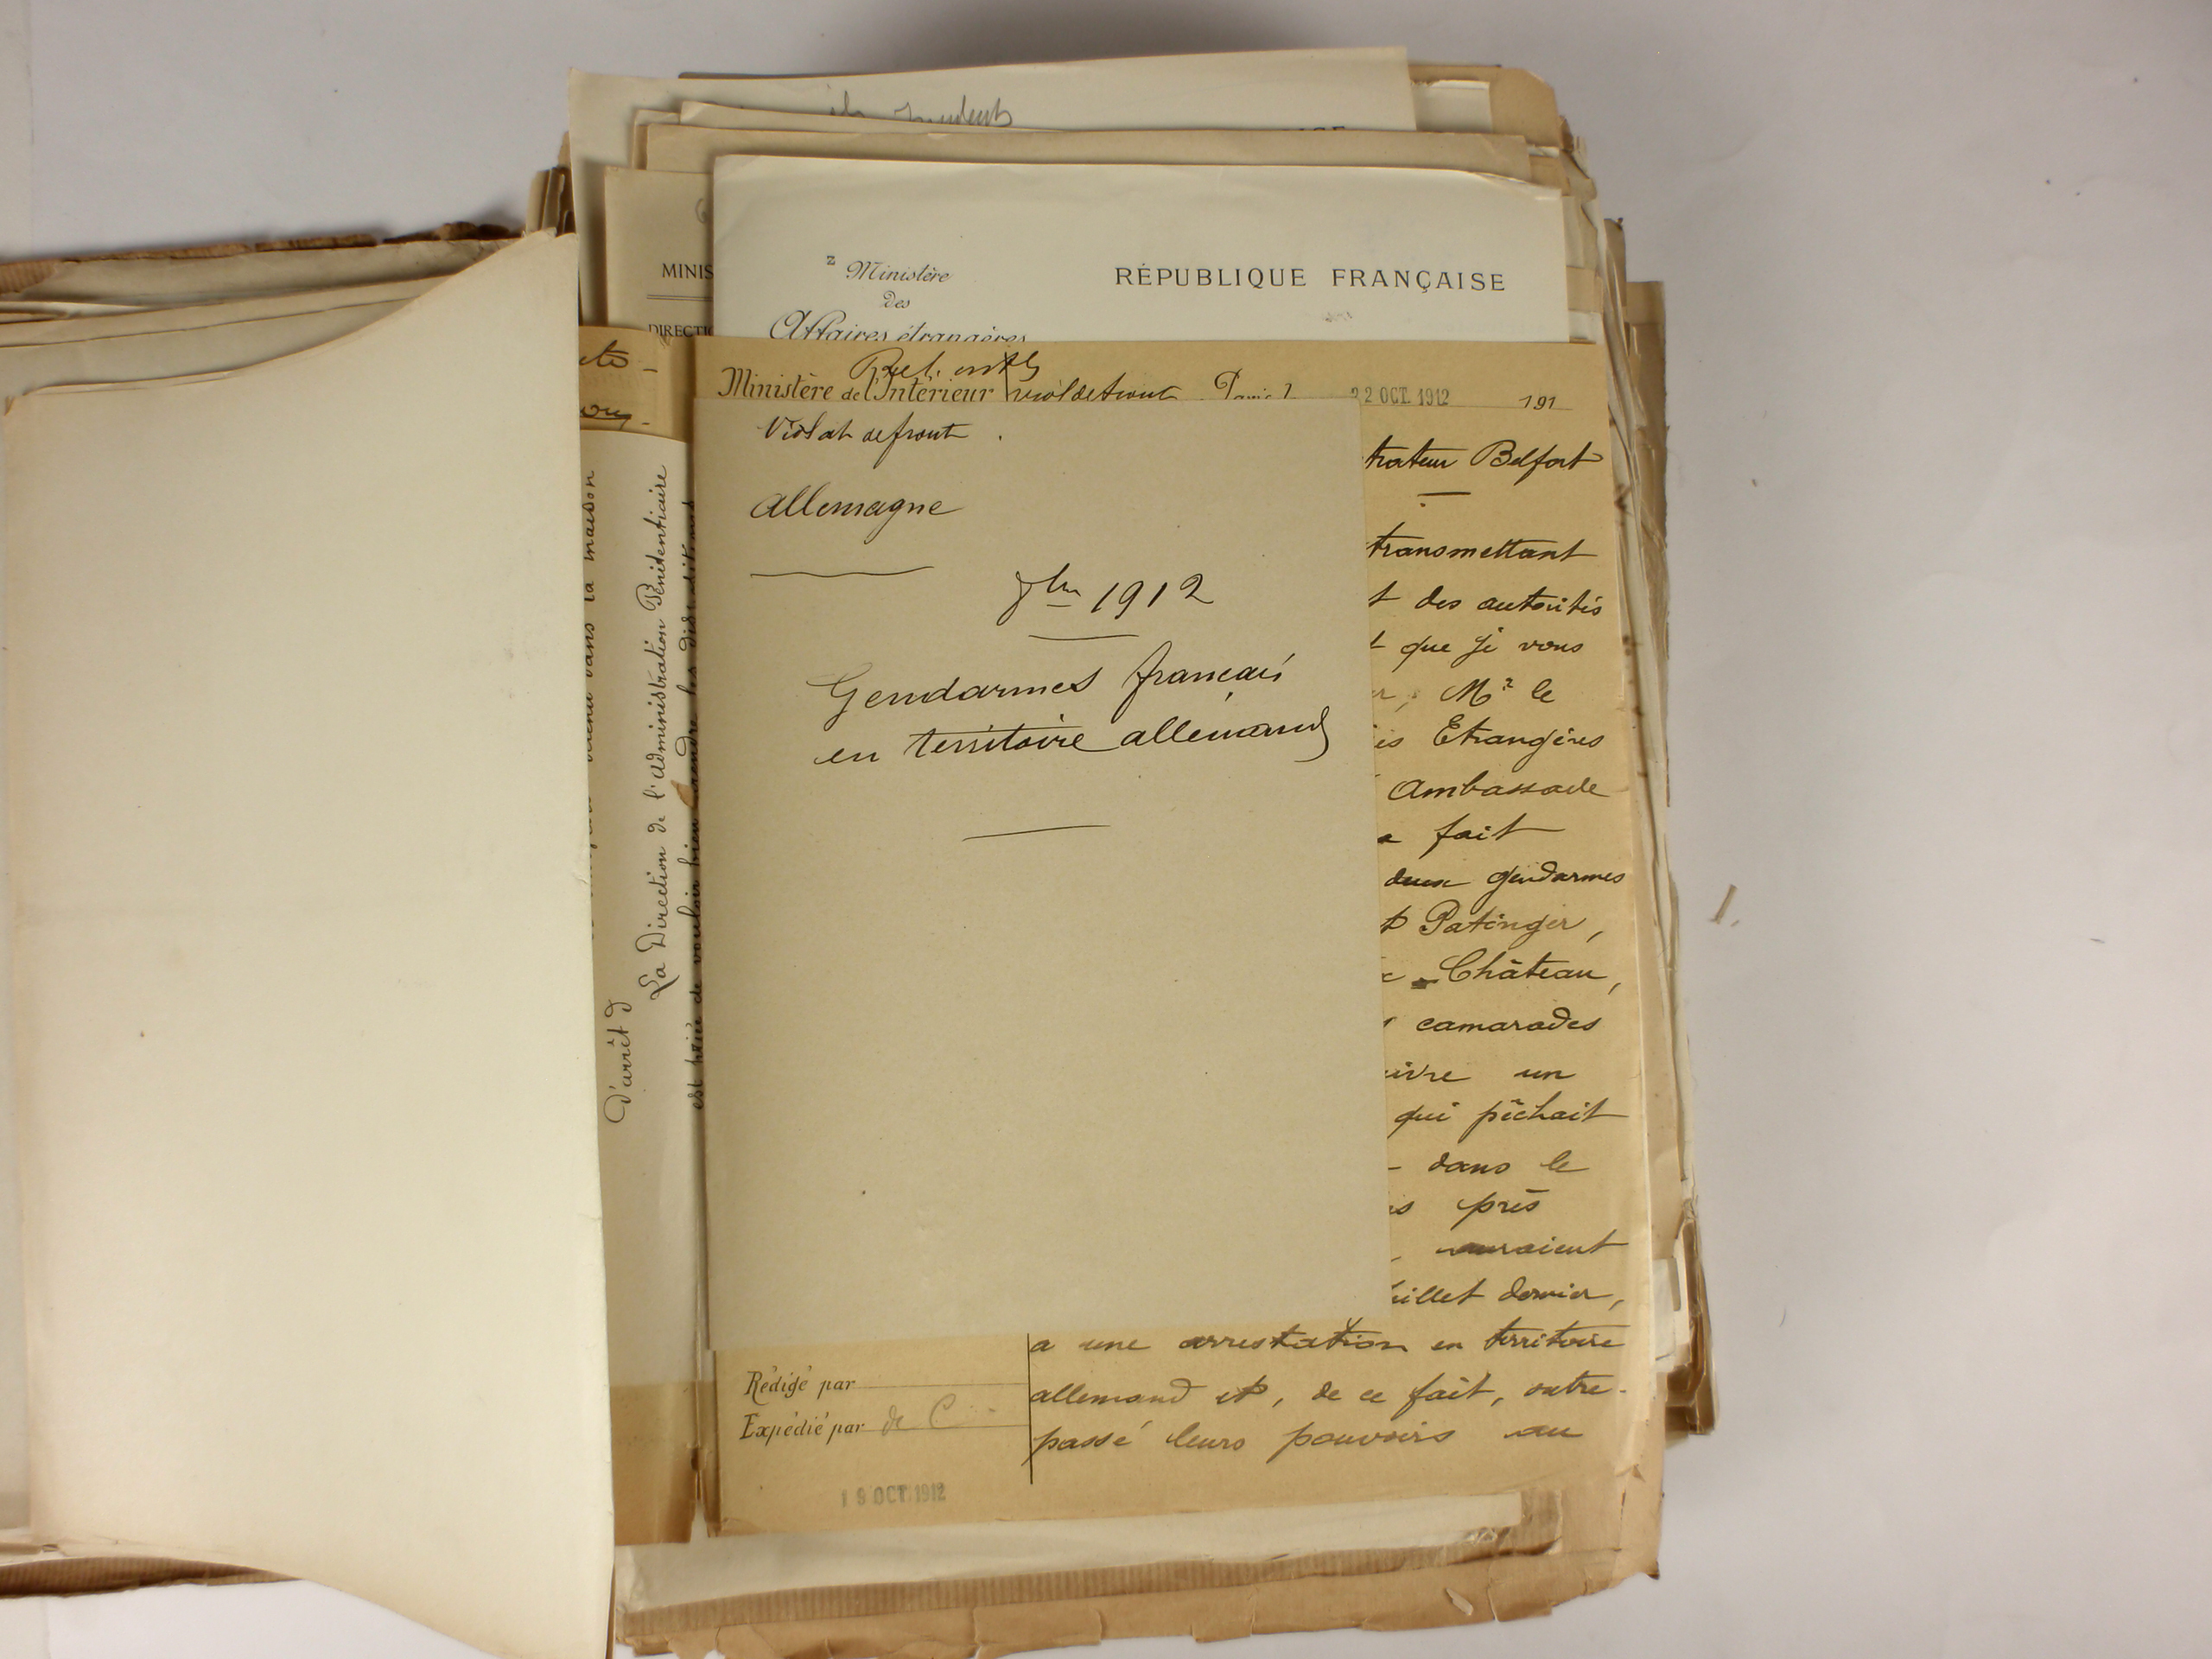 MINIS
DIRECTI
Ministère
des
Affaires étrangères
RÉPUBLIQUE FRANÇAISE
Ministère de l'Intérieur
22 OCT. 1912
191
Violat de front.
Allemagne
8bre 1912
Gendarmes français
en territoire allemand
trateur Belfort
transmettant
t des autorités
t que je vous
Mr le
Etrangères
Ambassade
a fait
deux gendarmes
Patinger,
Château,
camarades
ivre un
qui pêchait
dans le
près
auraient
uillet dernier,
a une arrestation en territoire
allemand et, de ce fait, outre-
passé leurs pouvoirs au
Rédigé par
Expédié par de C
19 OCT. 1912
dans la maison
d'arrêt d
La Direction de l'Administration Pénitentiaire
est prié de vouloir bien prendre les dispositions